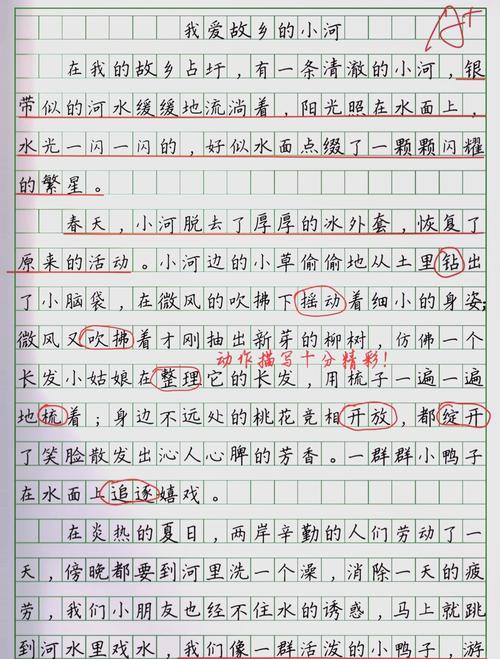 我爱故乡的小河
A+
在我的故乡占圩，有一条清澈的小河，银
带似的河水缓缓地流淌着，阳光照在水面上，
水光一闪一闪的，好似水面点缀了一颗颗闪耀
的繁星。
春天，小河脱去了厚厚的冰外套，恢复了
原来的活动。小河边的小草偷偷地从土里钻出
了小脑袋，在微风的吹拂下摇动着细小的身姿；
微风又吹拂着才刚抽出新芽的柳树，仿佛一个
动作描写十分精彩！
长发小姑娘在整理它的长发，用梳子一遍一遍
地梳着；身边不远处的桃花竞相开放，都绽开
了笑脸散发出沁人心脾的芳香。一群群小鸭子
在水面上追逐嬉戏。
在炎热的夏日，两岸辛勤的人们劳动了一
天，傍晚都要到河里洗一个澡，消除一天的疲
劳，我们小朋友也经不住水的诱惑，马上就跳
到河水里戏水，我们像一群活泼的小鸭子，游